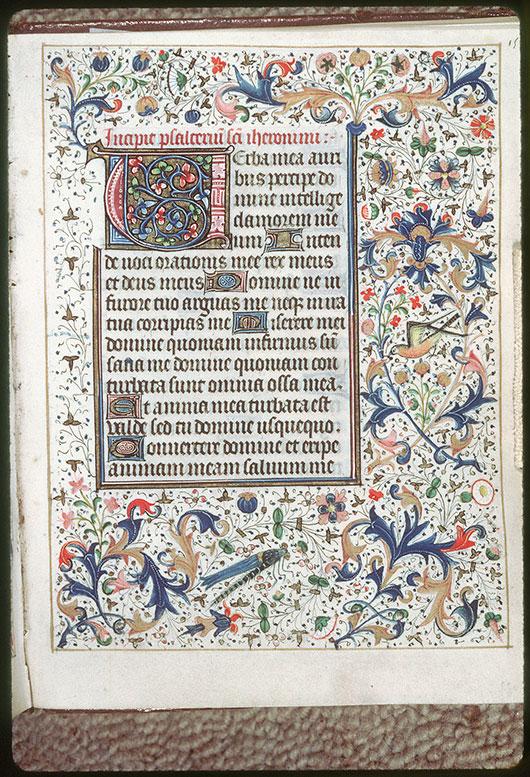 Incipit psalteriū scī iheronimi :·
Verba mea auri
bus percipe do
mine intellige
clamorem me
um Inten
de voci orationis mee rex meus
et deus meus Domine ne in
furore tuo arguas me neq; in ira
tua corripias me Miserere mei
domine quoniam infirmus sū
sana me domine quoniam con
turbata sunt omnia ossa mea.
Et anima mea turbata est
valde sed tu domine usquequo.
Convertere domine et eripe
animam meam salvum me